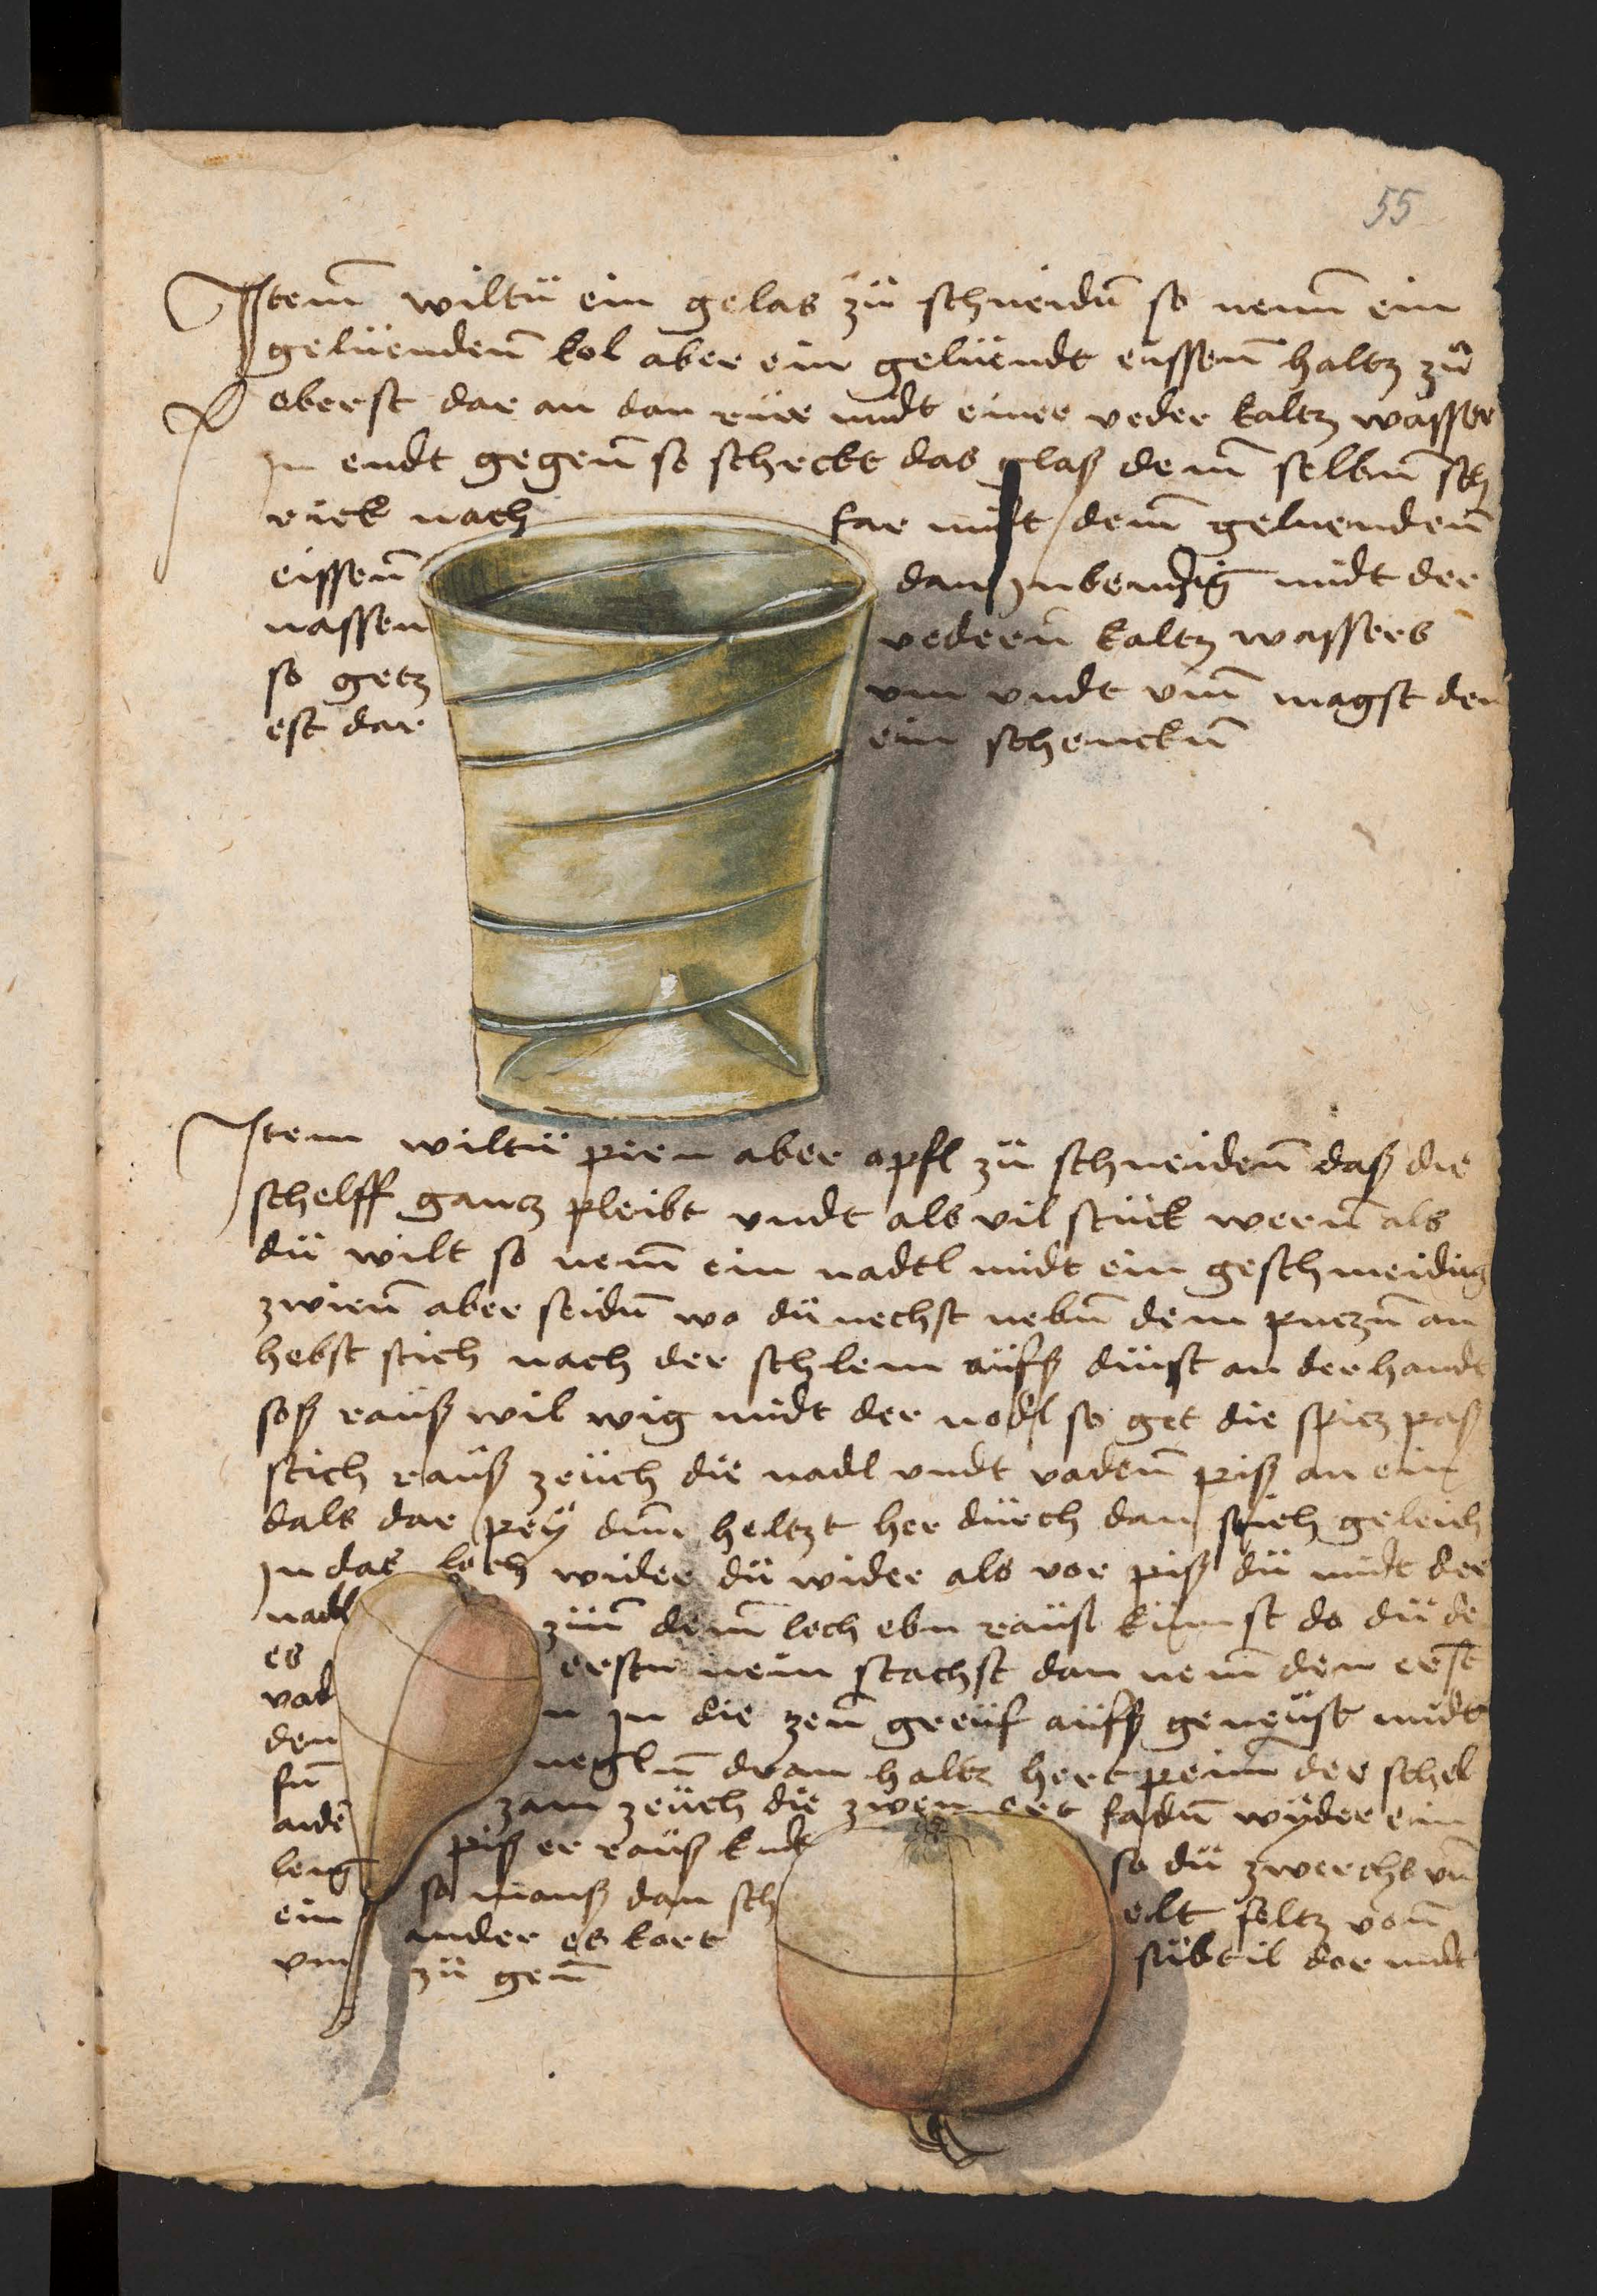 55
Item wiltü ein gelas zü schneidn̄ so nem̄ ein
gelüenden̄ kol aber ein gelüendt eissen̄ haltz zü
oberst dar an dan rüre midt einer veder kaltz wasser
in endt gegen̄ so schrekt das glaß dem̄ selbn̄ sch
rick nach far mitt dem̄ geluenden̄
eissen̄ dan inbendig midt der
nassen vedern kaltz wassers
so getz um undt um̄ magst den
est dar ein schenckn̄
Item wiltü pirn aber opfl zü schneiden̄ daß die
schelff gancz pleibt undt als vil stück wern̄ als
dü wilt so nem̄ ein nadel midt ein geschmeidig
zwirn̄ aber seidn̄ wo dü nechst nebn̄ dem puczn̄ an
hebst stich nach der schlem aüfß dünst an der handt
soß rauß wil wig midt der nodl so get die spicz paß
stich rauß zeüch die nadl undt vaden̄ piß an ein
dals dar pey dun̄ heltzt her dürch dan stich geleich
in das loch wider dü wider als vor piß dü midt der
nadl zün̄ dem̄ loch ebn raüst kümst do dü de
es ersten nein stachst dan nem den erst
vad n in die zen̄ greüf aüfß geneüst midt
den negln̄ dran haltz hert peim̄ der schel
fn̄ zam zeüch die zwen ort fadn̄ wyder ein
ander piß er rauß kudt so dü zwerchs un̄
leng so manß dan sch elt feltz von̄
ein ander es kort sübtil dor midt
um zü gen̄